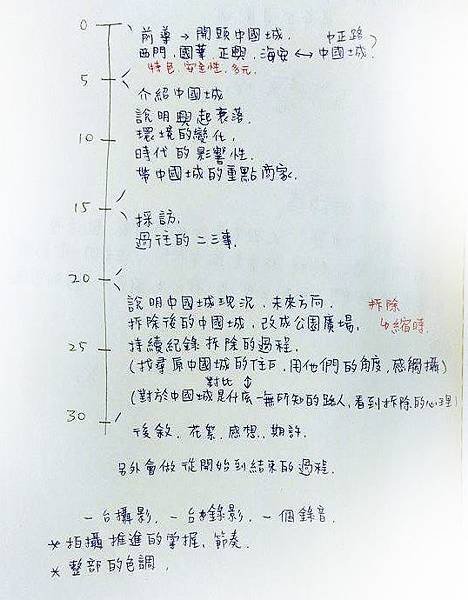 0
前導→開頭中國城. 中正路
西門, 國華, 正興, 海安 ↔ 中國城.
特色, 安全性, 多元.
5
介紹中國城
說明興起衰落.
環境的變化.
10
時代的影響性.
帶中國城的重點商家.
15
採訪.
過往的二三事.
20
說明中國城現況, 未來方向. 拆除
拆除後的中國城, 改成公園廣場. 縮時.
25
持續紀錄拆除的過程.
(找尋原中國城的住戶, 用他們的角度, 感觸攝)
對比 ↕
(對於中國城是什麼一無所知的路人, 看到拆除的心理)
30
後敘, 花絮, 感想, 期許.
另外會做從開始到結束的過程.
一台攝影. 一台錄影. 一個錄音.
* 拍攝推進的掌握, 節奏.
* 整部的色調.